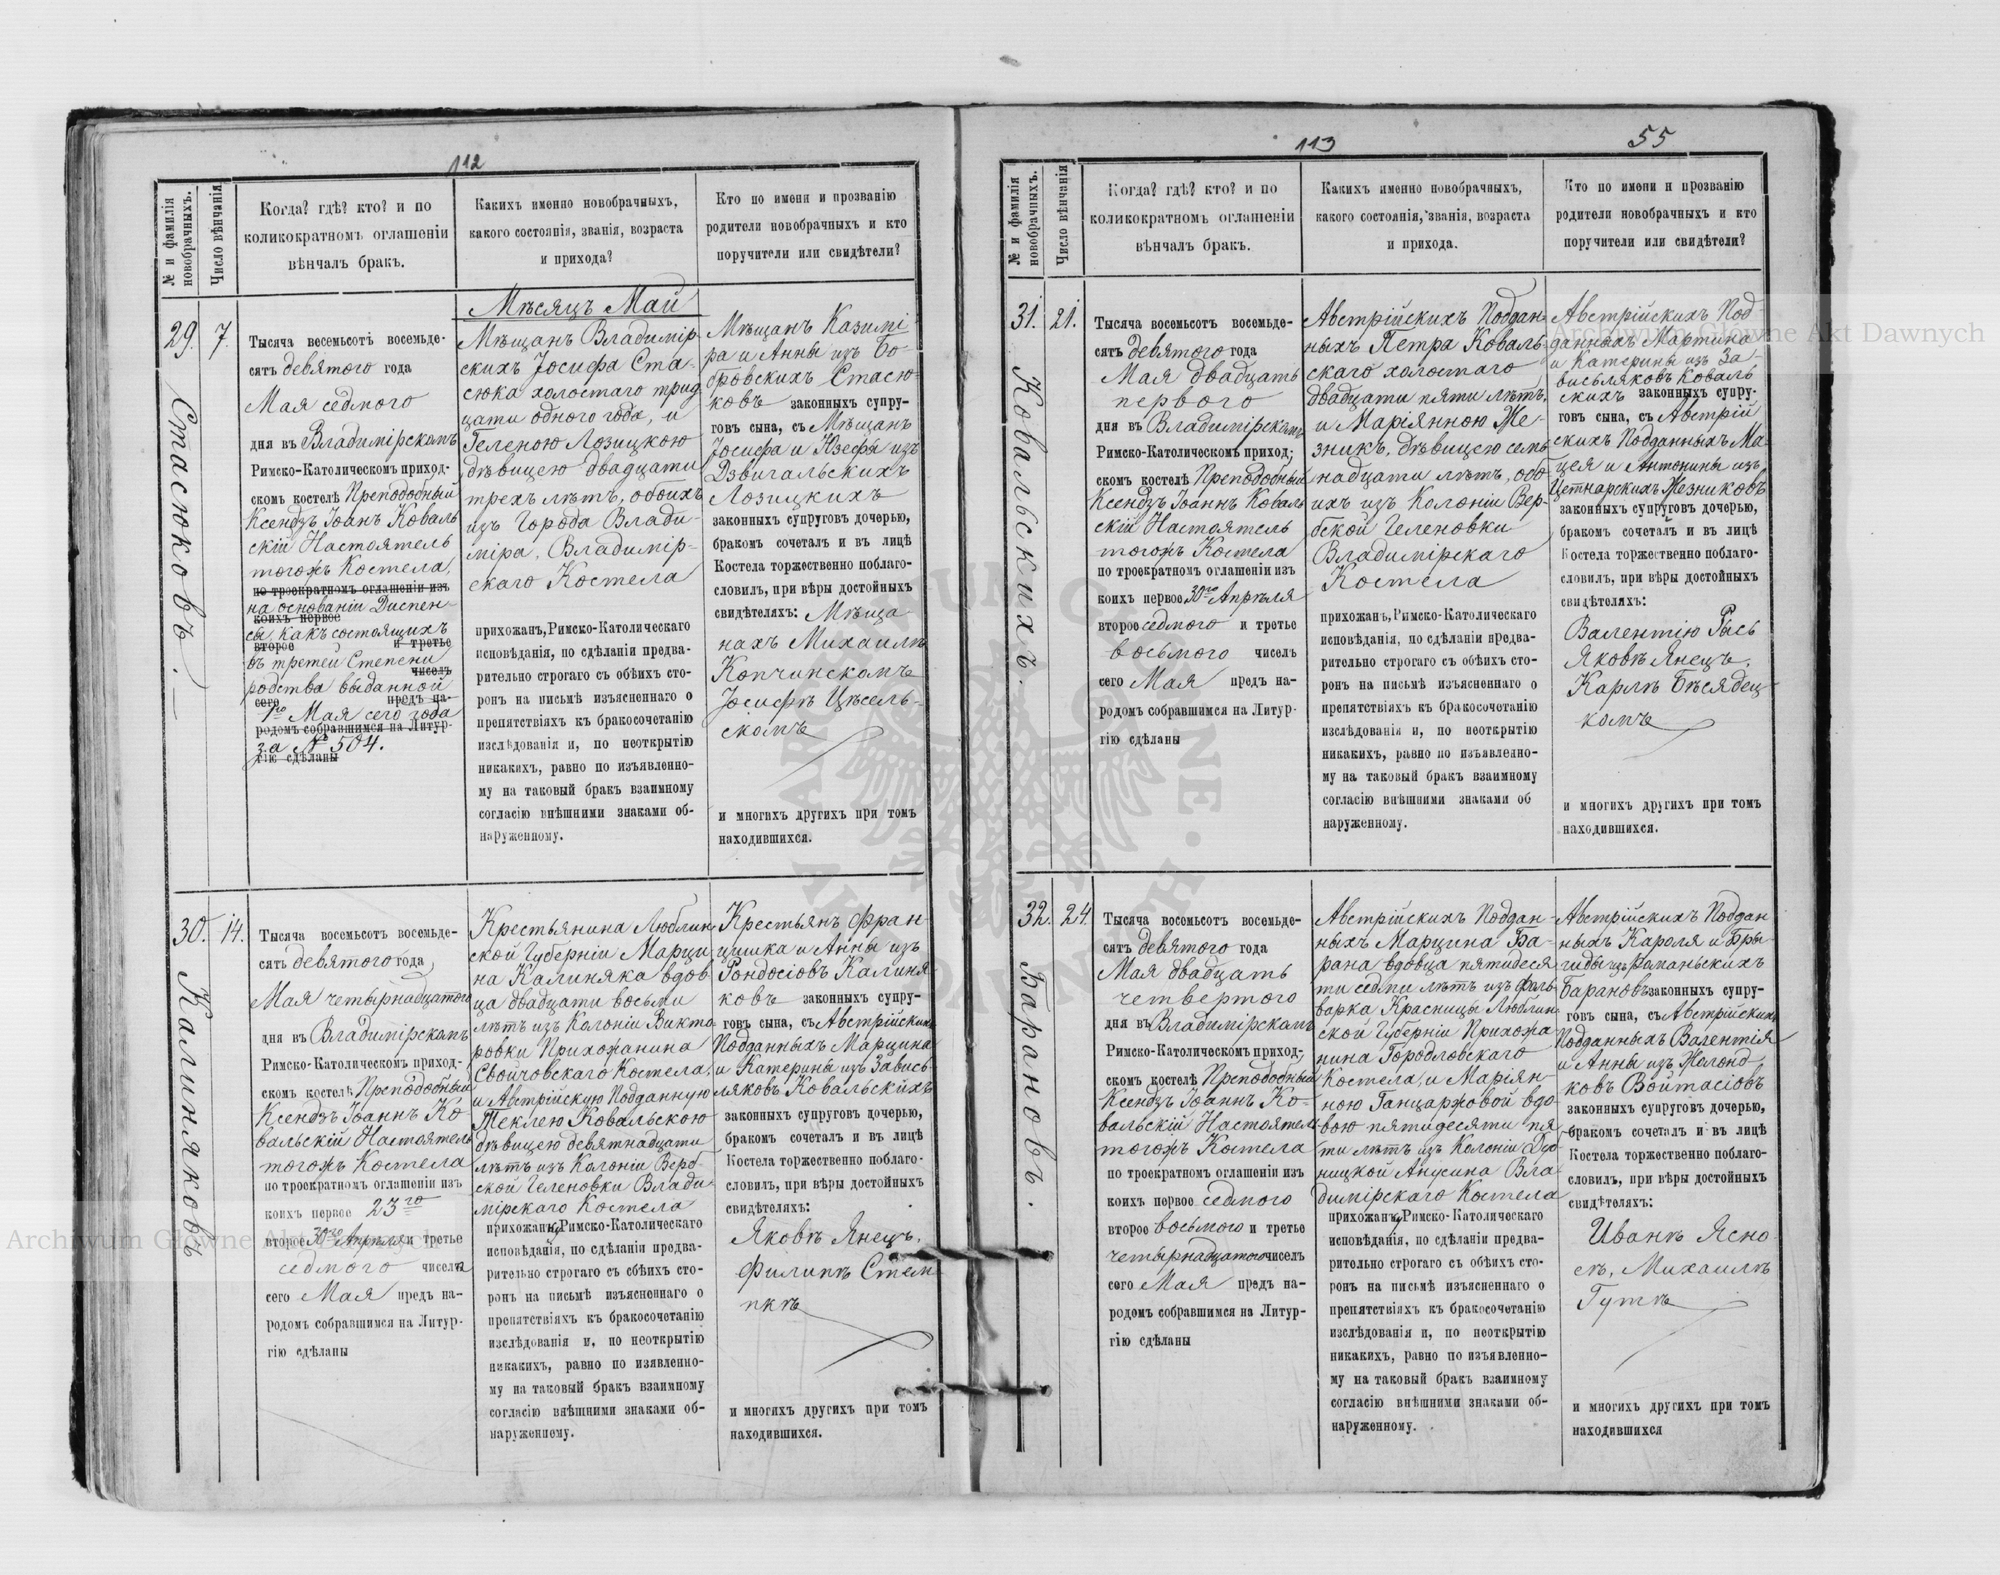 112
№ и фамилія новобрачныхъ.
Число вѣнчанія
Когда? гдѣ? кто? и по
коликократномъ оглашеніи
вѣнчалъ бракъ.
Какихъ именно новобрачныхъ,
какого состоянія, званія, возраста
и прихода?
Кто по имени и прозванію
родители новобрачныхъ и кто
поручители или свидѣтели?
29.
Стасюковъ.
7.
Тысяча весемьсотъ восемьде-
сятъ девятого года
Мая седмого
дня въ Владимірскомъ
Римско-Католическомъ приход-
скомъ костелѣ Преподобный
Ксендзъ Іоанъ Коваль
скій Настоятель
тогожъ Костела,
по троекратномъ оглашеніи изъ
на основаніи Диспен-
коихъ первое
сы, какъ состоящихъ
второе и третье
въ третей Степени
чиселъ
родства выданной
сего предъ на-
1го Мая сего года
родомъ собравшимся на Литур-
за № 504.
гію сдѣланы
Мѣсяцъ Май
Мѣщанъ Владимір-
скихъ Іосифа Ста-
сюка холостаго трид
цати одного года, и
Геленою Лозицкою
дѣвицею двадцати
трехъ лѣтъ, обоихъ
изъ Города Влади-
міра, Владимір-
скаго Костела
прихожанъ, Римско-Католическаго
исповѣданія, по сдѣланіи предва-
рительно строгаго съ обѣихъ сто-
ронъ на письмѣ изъясненнаго о
препятствіяхъ къ бракосочетанію
изслѣдованія и, по неоткрытію
никакихъ, равно по изъявленно-
му на таковый бракъ взаимному
согласію внѣшними знаками об-
наруженному.
Мѣщанъ Казимі-
ра и Анны изъ Бо-
бровскихъ Стасю-
ковъ законныхъ супру-
говъ сына, съ Мѣщанъ
Іосифа и Юзефы изъ
Дзвигальскихъ
Лозицкихъ
законныхъ супруговъ дочерью,
бракомъ сочеталъ и въ лицѣ
Костела торжественно поблаго-
словилъ, при вѣры достойныхъ
свидѣтеляхъ: Мѣща
нахъ Михаилѣ
Копчинскомъ
Іосифѣ Цѣсель-
скомъ
и многихъ другихъ при томъ
находившихся.
30.
Калиняковъ
14.
Тысяча восемьсотъ восемьде-
сятъ девятого года
Мая четырнадцатого
дня въ Владимірскомъ
Римско-Католическомъ приход-
скомъ костелѣ Преподобный
Ксендзъ Іоаннъ Ко-
вальскій Настоятель
тогожъ Костела
по троекратномъ оглашеніи изъ
коихъ первое 23го
второе 30го Апрѣля и третье
седмого числа
сего Мая предъ на-
родомъ собравшимся на Литур-
гію сдѣланы
Крестьянина Люблин
ской Губерніи Марци
на Калиняка вдов
ца двадцати восьми
лѣтъ изъ Колоніи Викто
ровки Прихожанина
Свойчовскаго Костела,
и Австрійскую Подданную
Теклею Ковальскою
дѣвицею девятнадцати
лѣтъ изъ Колоніи Верб-
ской Геленовки Влади-
мірскаго Костела
прихожанку Римско-Католическаго
исповѣданія, по сдѣланіи предва-
рительно строгаго съ обѣихъ сто-
ронъ на письмѣ изъясненнаго о
препятствіяхъ къ бракосочетанію
изслѣдованія и, по неоткрытію
никакихъ, равно по изявленно-
му на таковый бракъ взаимному
согласію внѣшними знаками об-
наруженному.
Крестьянъ Фран-
цишка и Анны изъ
Рондосіовъ Калиня
ковъ законныхъ супру-
говъ сына, съ Австрійскихъ
Подданныхъ Марцина
и Катерины изъ Завись
ляковъ Ковальскихъ
законныхъ супруговъ дочерью,
бракомъ сочеталъ и въ лицѣ
Костела торжественно поблаго-
словилъ, при вѣры достойныхъ
свидѣтеляхъ:
Яковѣ Янецъ,
Филипѣ Стем
пкѣ
и многихъ другихъ при томъ
находившихся.
113
55
№ и фамилія новобрачныхъ.
Число вѣнчанія
Когда? гдѣ? кто? и по
коликократномъ оглашеніи
вѣнчалъ бракъ.
Какихъ именно новобрачныхъ,
какого состоянія, званія, возраста
и прихода.
Кто по имени и прозванію
родители новобрачныхъ и кто
поручители или свидѣтели?
31.
Ковальскихъ.
21.
Тысяча восемьсотъ восемьде-
сятъ девятого года
Мая двадцать
первого
дня въ Владимірскомъ
Римско-Католическомъ приход-
скомъ костелѣ Преподобный
Ксендзъ Іоаннъ Коваль
скій Настоятель
тогожъ Костела
по троекратномъ оглашеніи изъ
коихъ первое 30го Апрѣля
второе седмого и третье
восьмого чиселъ
сего Мая предъ на-
родомъ собравшимся на Литур-
гію сдѣланы
Австрійскихъ Поддан-
ныхъ Петра Коваль-
скаго холостаго
двадцати пяти лѣтъ,
и Маріянною Же-
зникъ, дѣвицею семь
надцати лѣтъ, обо-
ихъ изъ Колоніи Вер-
бской Геленовки
Владимірскаго
Костела
прихожанъ, Римско-Католическаго
исповѣданія, по сдѣланіи предва-
рительно строгаго съ обѣихъ сто-
ронъ на письмѣ изъясненнаго о
препятствіяхъ къ бракосочетанію
изслѣдованія и, по неоткрытію
никакихъ, равно по изъявленно-
му на таковый бракъ взаимному
согласію внѣшними знаками об
наруженному.
Австрійскихъ Под
данныхъ Мартина
и Катерины изъ За-
висьляковъ Коваль
скихъ законныхъ супру-
говъ сына, съ Австрій
скихъ Подданныхъ Ма-
цея и Антонины изъ
Цетнарскихъ Жезниковъ
законныхъ супруговъ дочерью,
бракомъ сочеталъ и въ лицѣ
Костела торжественно поблаго-
словилъ, при вѣры достойныхъ
свидѣтеляхъ:
Валентію Рысь
Яковѣ Янецъ,
Карлѣ Бѣсядец
комъ
и многихъ другихъ при томъ
находившихся.
32.
Барановъ.
24.
Тысяча восемьсотъ восемьде-
сятъ девятого года
Мая двадцать
четвертого
дня въ Владимірскомъ
Римско-Католическомъ приход-
скомъ костелѣ Преподобный
Ксендзъ Іоаннъ Ко-
вальскій Настоятель
тогожъ Костела
по троекратномъ оглашеніи изъ
коихъ первое седмого
второе восьмого и третье
четырнадцатого чиселъ
сего Мая предъ на-
родомъ собравшимся на Литур-
гію сдѣланы
Австрійскихъ Поддан-
ныхъ Марцина Ба-
рана вдовца пятидеся
ти седми лѣтъ изъ Фоль
варка Красницы Люблин
ской Губерніи Прихожа
нина Городловскаго
Костела, и Маріян-
ною Ганцаржовой вдо
вою пятидесяти пя
ти лѣтъ изъ Колоніи Дуб
ницкой Анусина Вла
димірскаго Костела
прихожанку Римско-Католическаго
исповѣданія, по сдѣланіи предва-
рительно строгаго съ обѣихъ сто-
ронъ на письмѣ изъясненнаго о
препятствіяхъ къ бракосочетанію
изслѣдованія и, по неоткрытію
никакихъ, равно по изъявленно-
му на таковый бракъ взаимному
согласію внѣшними знаками об-
наруженному.
Австрійскихъ Поддан
ныхъ Кароля и Бры-
гиды изъ Романьскихъ
Барановъ законныхъ супру-
говъ сына, съ Австрійскихъ
Подданныхъ Валентія
и Анны изъ Желонд
ковъ Войтасіовъ
законныхъ супруговъ дочерью,
бракомъ сочеталъ и въ лицѣ
Костела торжественно поблаго-
словилъ, при вѣры достойныхъ
свидѣтеляхъ:
Иванѣ Ясно
скъ, Михаилѣ
Гутъ
и многихъ другихъ при томъ
находившихся
Archiwum Główne Akt Dawnych
Archiwum Główne Akt Dawnych